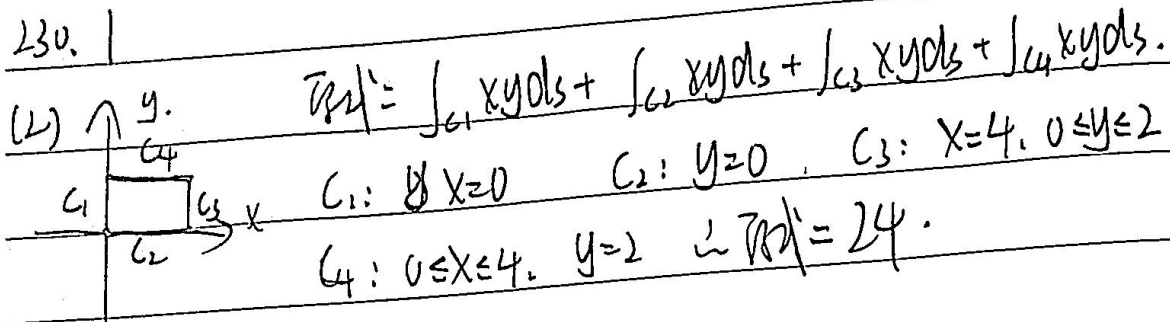 230.
(2) y. 原式 = ∫C1 xyds + ∫C2 xyds + ∫C3 xyds + ∫C4 xyds.
C4
C1 C3 x C1: x=0 C2: y=0 . C3: x=4. 0≤y≤2
C2 C4: 0≤x≤4. y=2 ∴ 原式 = 24.